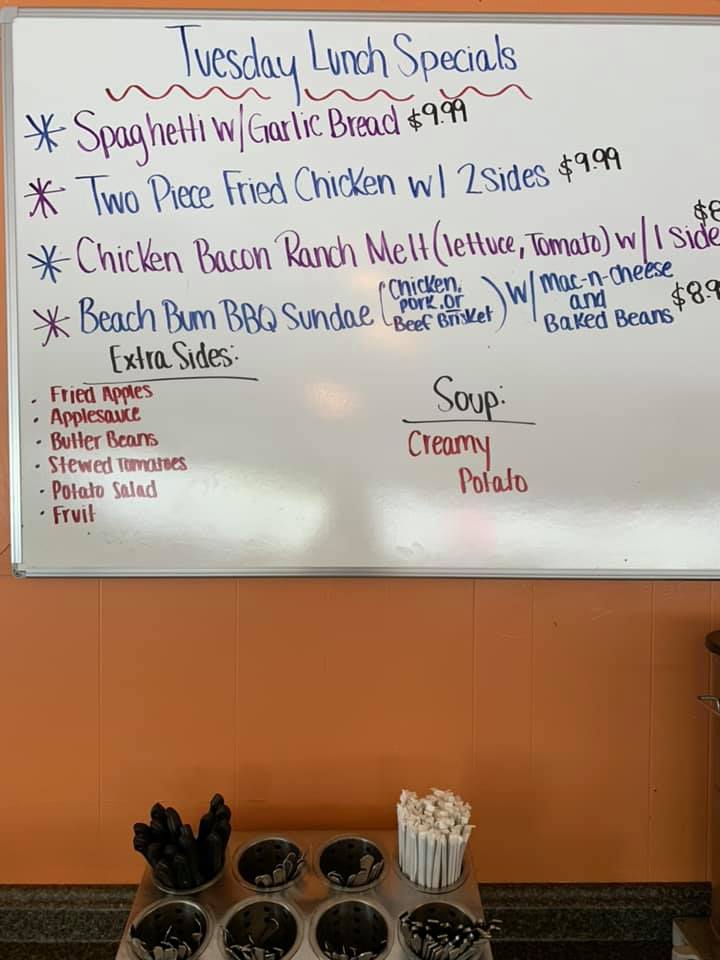 Tuesday Lunch Specials
* Spaghetti w/Garlic Bread $9.99
* Two Piece Fried Chicken w/ 2 sides $9.99
* Chicken Bacon Ranch Melt (lettuce, Tomato) w/ 1 side $8
* Beach Bum BBQ Sundae (Chicken, pork, or Beef Brisket) w/ Mac-n-cheese and Baked Beans $8.9
Extra Sides:
• Fried Apples
• Applesauce
• Butter Beans
• Stewed Tomatoes
• Potato Salad
• Fruit
Soup:
Creamy
Potato